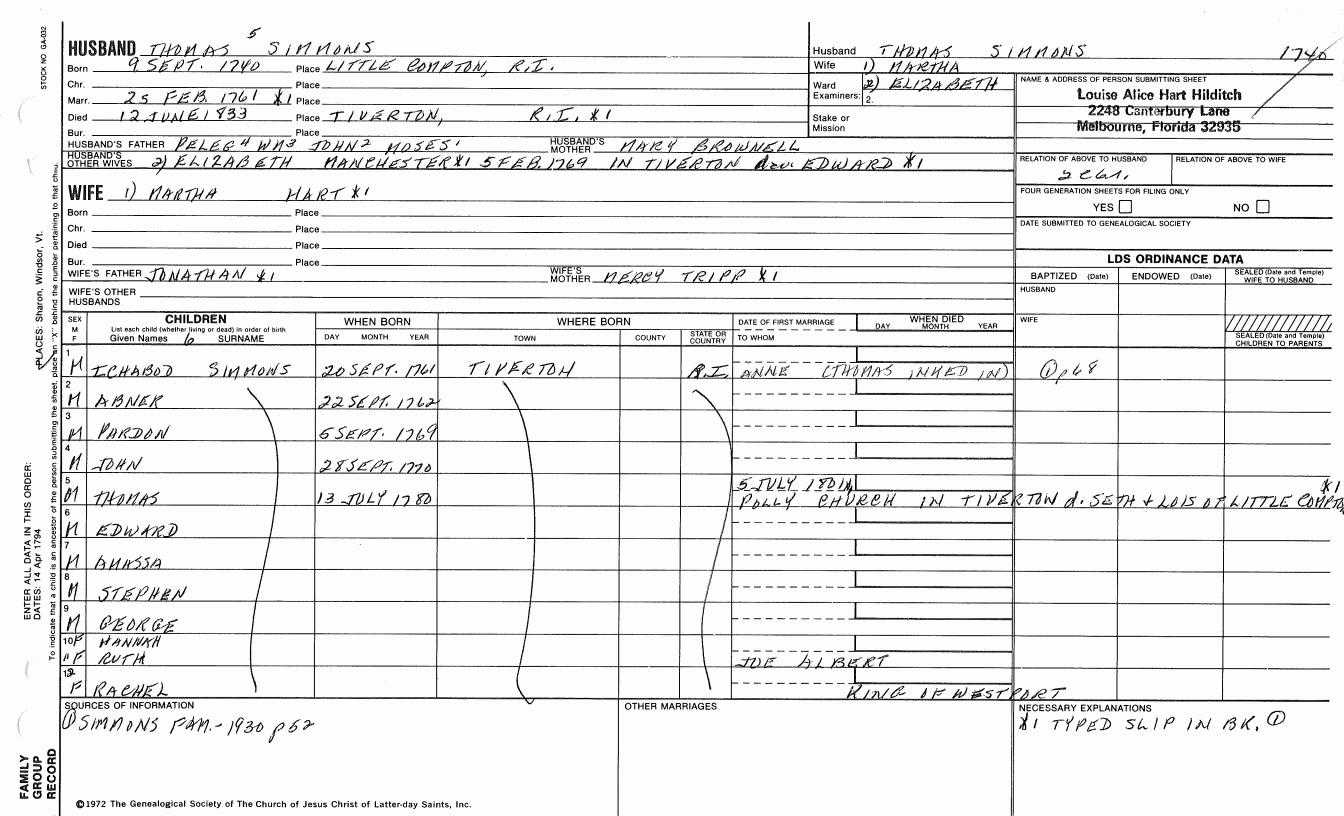 STOCK NO GA-032
5
HUSBAND THOMAS SIMMONS
Born 9 SEPT. 1740 Place LITTLE COMPTON, R.I.
Chr. Place
Marr. 25 FEB. 1761 *1 Place
Died 12 JUNE 1833 Place TIVERTON, R.I. *1
Bur. Place
HUSBAND'S FATHER PELEG4 WM3 JOHN2 MOSES1 HUSBAND'S MOTHER MARY BROWNELL
HUSBAND'S OTHER WIVES 2) ELIZABETH MANCHESTER *1 5 FEB. 1769 IN TIVERTON EDWARD *1
WIFE 1) MARTHA HART *1
Born Place
Chr. Place
Died Place
Bur. Place
WIFE'S FATHER JONATHAN *1 WIFE'S MOTHER MERCY TRIPP *1
WIFE'S OTHER HUSBANDS
Husband THOMAS SIMMONS 1740
Wife 1) MARTHA
Ward 2) ELIZABETH
Examiners: 2.
Stake or Mission
NAME & ADDRESS OF PERSON SUBMITTING SHEET
Louise Alice Hart Hilditch
2248 Canterbury Lane
Melbourne, Florida 32935
RELATION OF ABOVE TO HUSBAND RELATION OF ABOVE TO WIFE
FOUR GENERATION SHEETS FOR FILING ONLY
YES NO
DATE SUBMITTED TO GENEALOGICAL SOCIETY
LDS ORDINANCE DATA
BAPTIZED (Date) ENDOWED (Date) SEALED (Date and Temple) WIFE TO HUSBAND
HUSBAND
WIFE
SEALED (Date and Temple) CHILDREN TO PARENTS
SEX M F
CHILDREN
List each child (whether living or dead) in order of birth
Given Names 6 SURNAME
WHEN BORN
DAY MONTH YEAR
WHERE BORN
TOWN COUNTY STATE OR COUNTRY
DATE OF FIRST MARRIAGE
TO WHOM
WHEN DIED
DAY MONTH YEAR
1 M ICHABOD SIMMONS 20 SEPT. 1761 TIVERTON R.I. ANNE (THOMAS INKED IN) ① p 68
2 M ABNER 22 SEPT. 1762
3 M PARDON 6 SEPT. 1769
4 M JOHN 28 SEPT. 1770
5 M THOMAS 13 JULY 1780 5 JULY 1801 *1
POLLY CHURCH IN TIVERTON d. SETH & LOIS OF LITTLE COMPTON
6 M EDWARD
7 M AMASSA
8 M STEPHEN
9 M GEORGE
10 F HANNAH
11 F RUTH JOE ALBERT
12 F RACHEL KING OF WESTPORT
SOURCES OF INFORMATION
① SIMMONS FAM.- 1930 p 52
OTHER MARRIAGES
NECESSARY EXPLANATIONS
*1 TYPED SLIP IN BK. ①
©1972 The Genealogical Society of The Church of Jesus Christ of Latter-day Saints, Inc.
ENTER ALL DATA IN THIS ORDER:
DATES: 14 Apr 1794
PLACES: Sharon, Windsor, Vt.
To indicate that a child is an ancestor of the person submitting the sheet, place an "X" behind the number pertaining to that child.
FAMILY
GROUP
RECORD